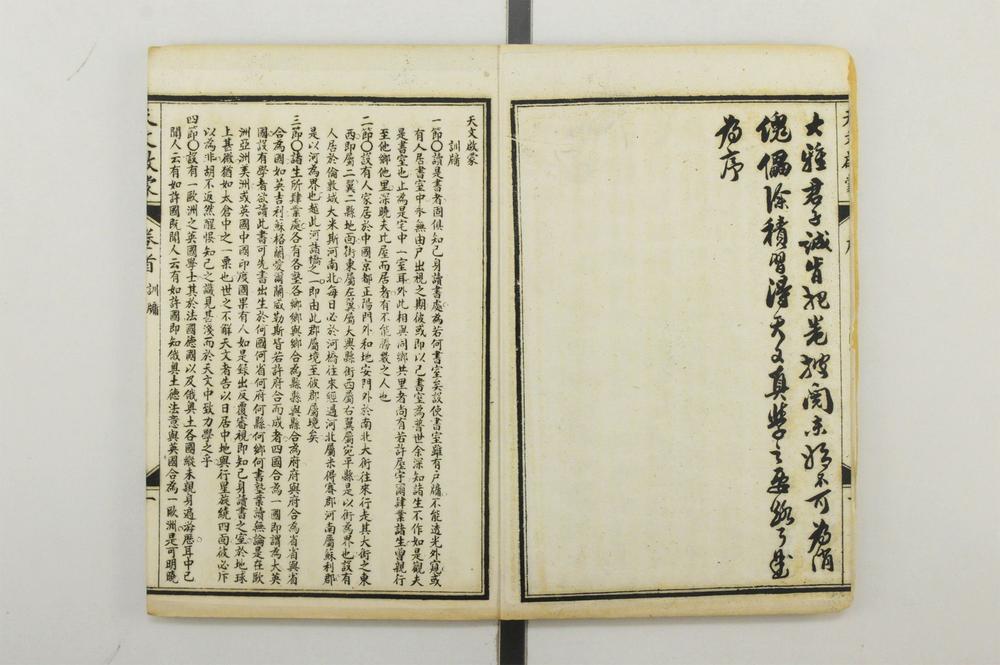 大雅君子誠肯把卷披閱未始不可為消
傀儡除積習得天文真學之要與是
為序
天文啟蒙
訓牖
一節〇請是書者固俱知己身讀書處為若何書室矣設使書室雖有戶牖不能透光外窺或
有人居書室中永無由戶出視之期彼或即以己書室為普世余深知諸生不作如是觀夫
是書室也止為是宅中一室耳外此相與同鄉共里者尚有若許屋宇爾肄業諸生曾親行
至他鄉他里深曉天比屋而居者有不能勝數之人也
二節〇設有人家居於中國京都正陽門外和地安門外於南北大街往來行走其大街之東
西即屬二翼二縣地面街東屬左翼屬大興縣街西屬右翼屬宛平縣是以街為界也設有
人居於倫敦城大米斯河南北每日必於河橋往來經過河北屬米得賽郡河南屬蘇利郡
是以河為界也越此河諸橋之一即由此郡屬境至彼郡屬境矣
三節〇諸生所肄業處各有各塾各鄉鄉與鄉合為縣縣與縣合為府府與府合為省省與省
合為國如英吉利蘇格蘭愛爾蘭威勒斯皆若許府合而成者四國合為一國即謂為大英
國設有學者欲讀此書可先書出生於何國何省何府何縣何鄉何書塾業讀無論是在歐
洲亞洲美洲或英國中國印度國果有人如是錄出反覆審視即知己身讀書之室於地球
上甚微猶如太倉中之一粟也世之不解天文者告以日居中地與行星旋繞四面彼必斥
以為非胡不返然醒悞知己之識見甚淺而於天文中致力學之乎
四節〇設有一歐洲之英國學士其於法國德國以及俄奧土各國縱未親身過游歷耳中已
聞人云有如許國既聞人云有如許國即知俄奧土德法意與英國合為一歐洲是可明曉
天文啟蒙
卷首
訓牖